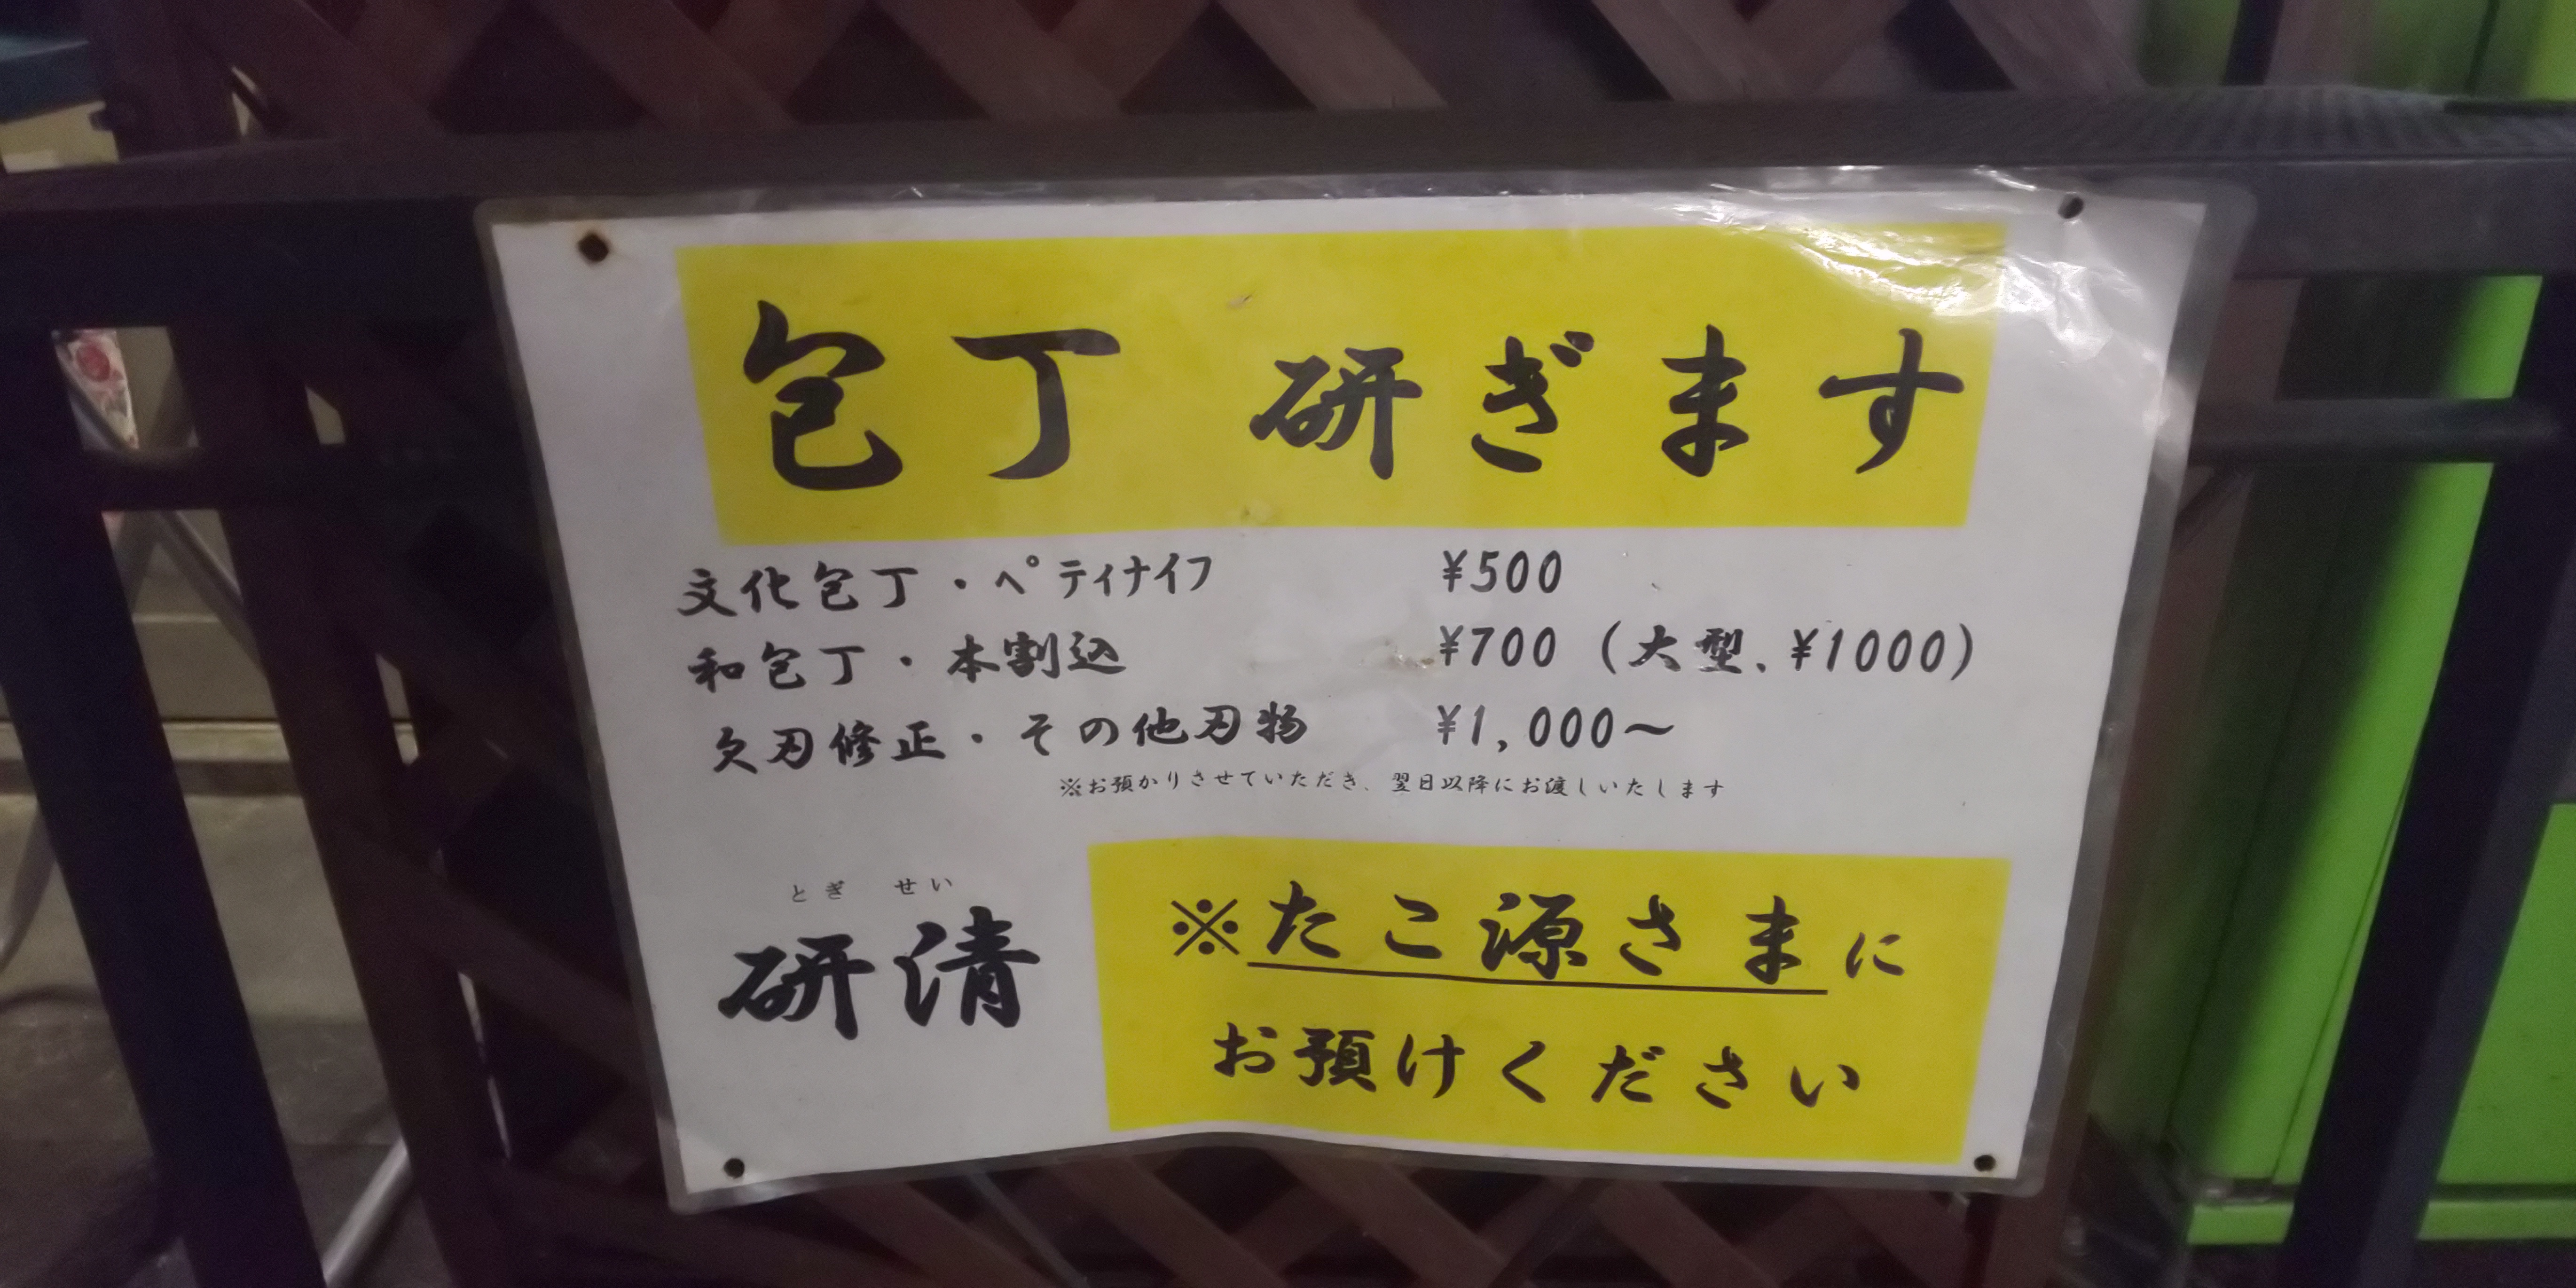 包丁 研ぎます
文化包丁・ペティナイフ ¥500
和包丁・本割込 ¥700 (大型、¥1000)
欠刃修正・その他刃物 ¥1,000～
※お預かりさせていただき、翌日以降にお渡しいたします
とぎ せい
研清
※たこ源さまに
お預けください